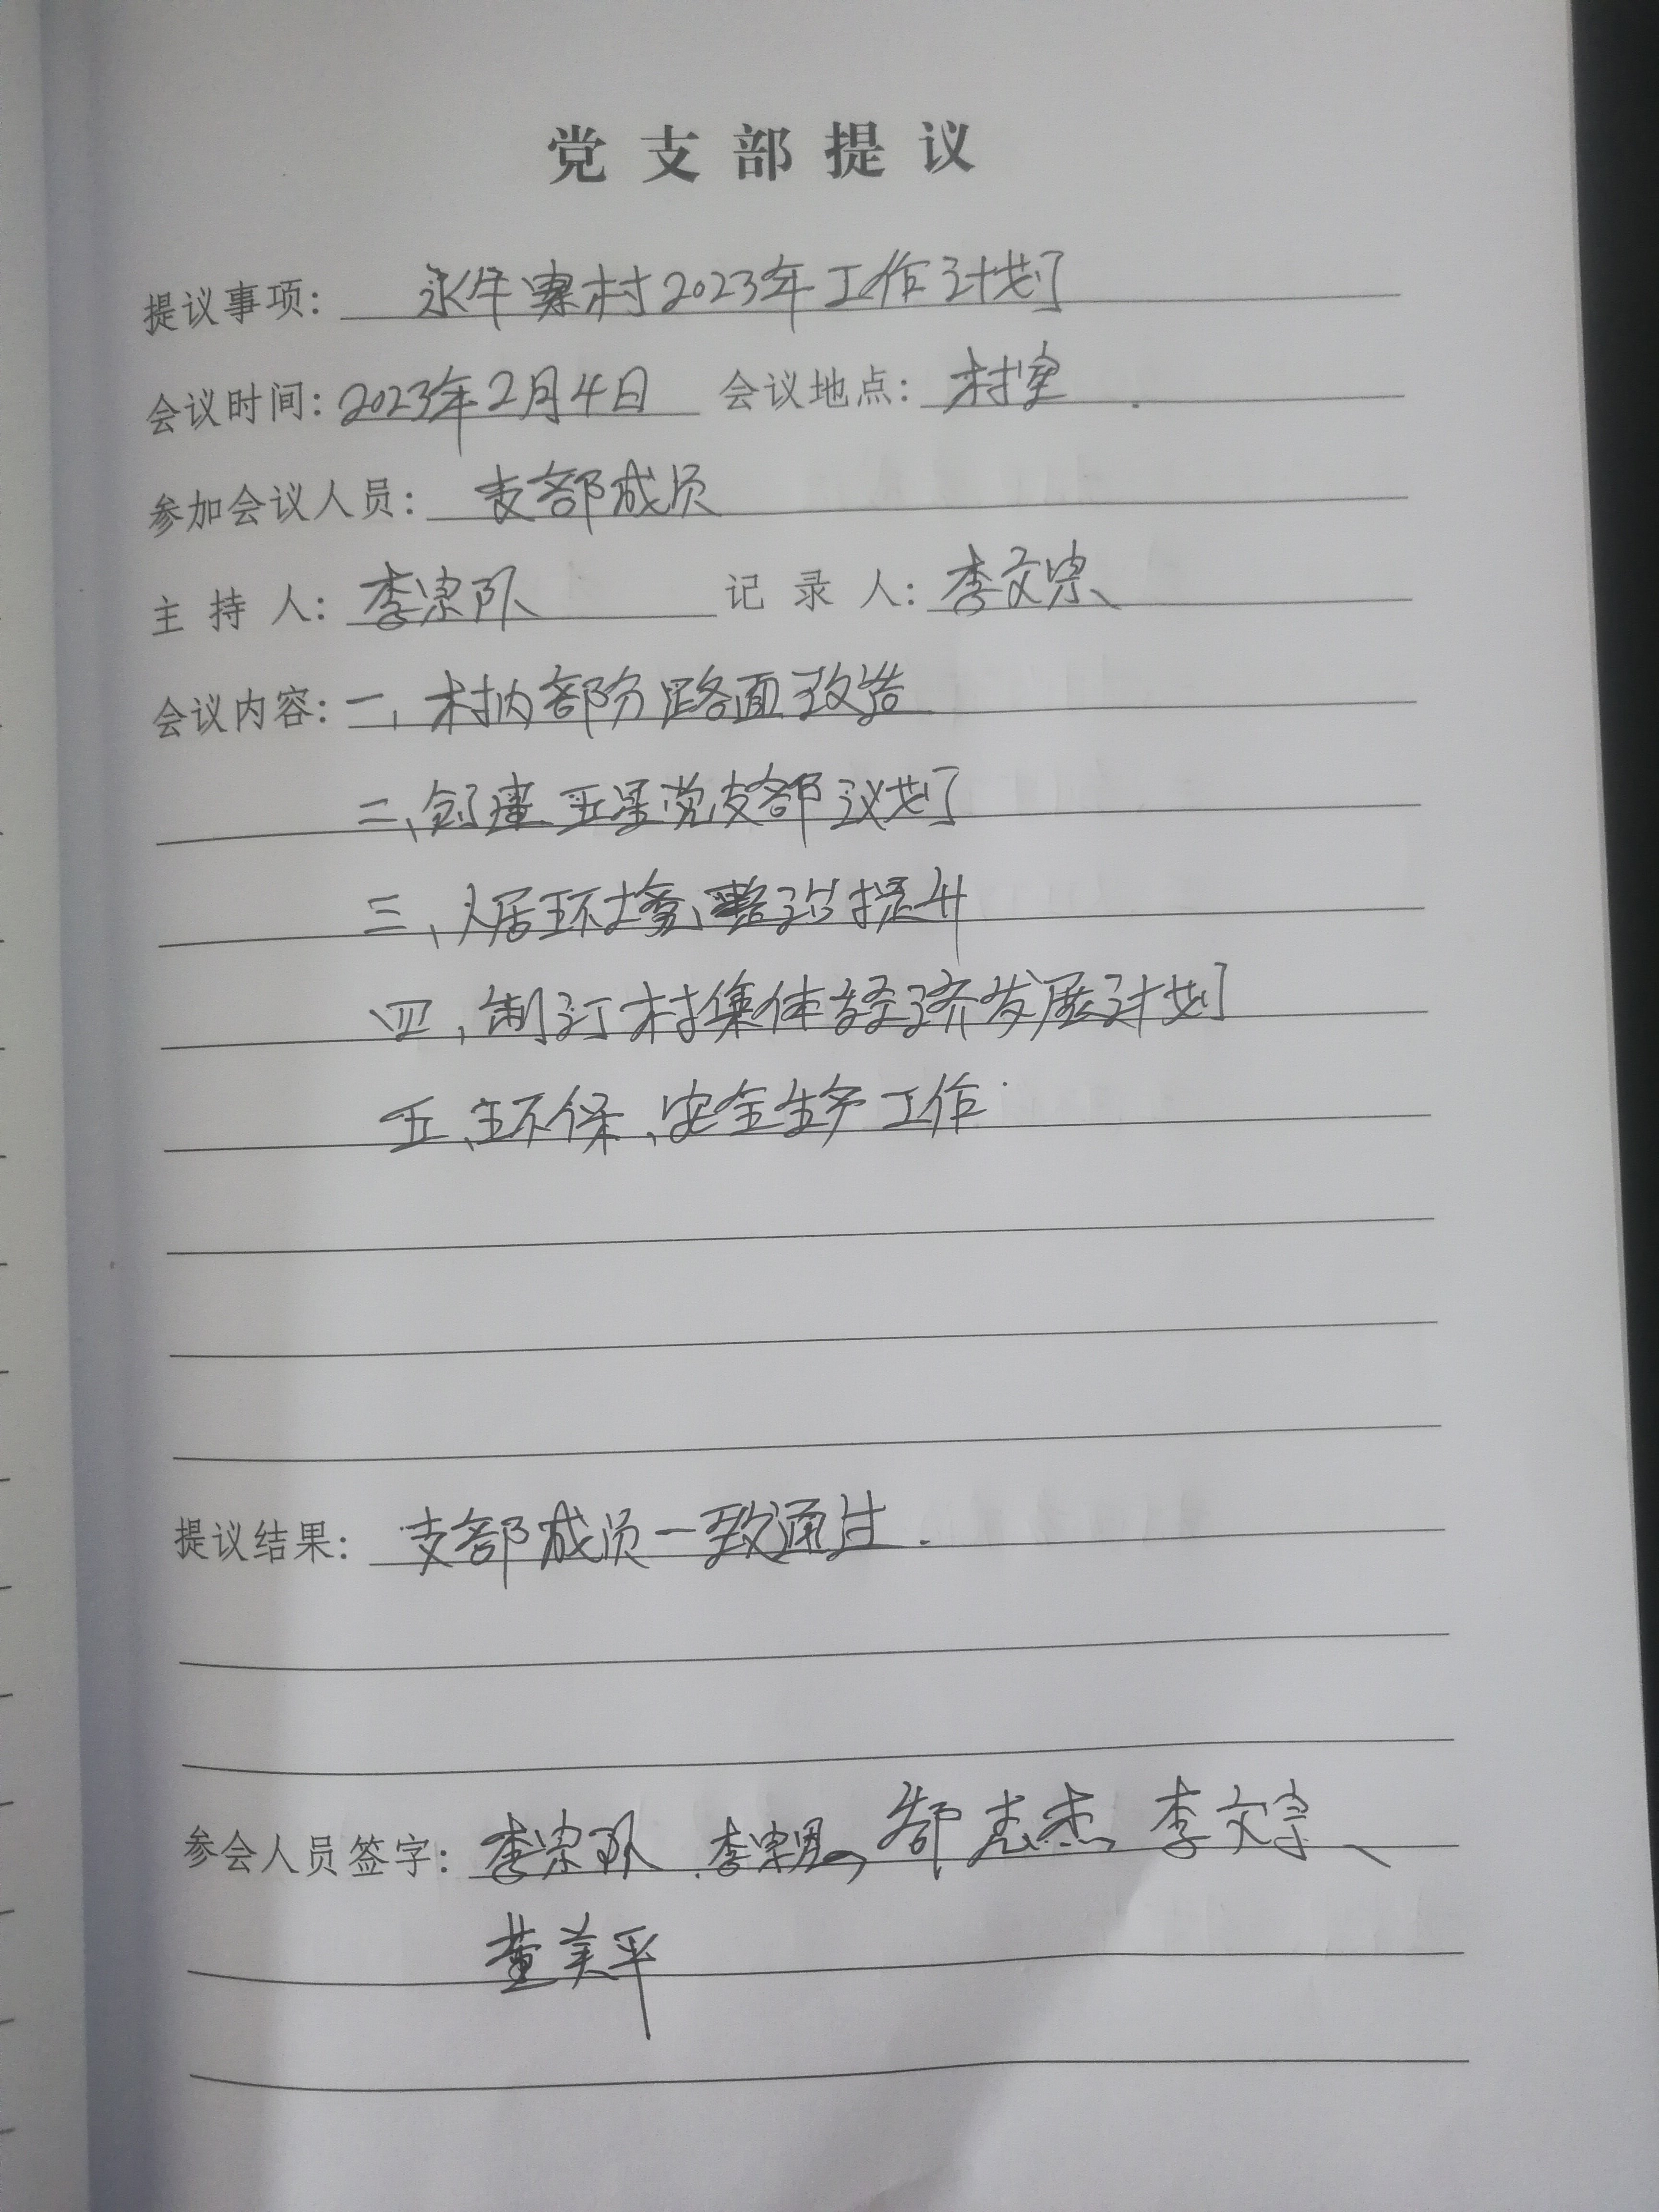 党支部提议
提议事项: 村2023年工作计划
会议时间: 2023年2月4日 会议地点: 村室
参加会议人员: 支部成员
主持人: 李宗队 记录人: 李文宗
会议内容: 一、村内部分路面改造
二、创建五星党支部计划
三、人居环境、整治提升
四、制订村集体经济发展计划
五、环保、安全生产工作
提议结果: 支部成员一致通过.
参会人员签字: 李宗队 李宗 郜志杰 李文宗
董美平